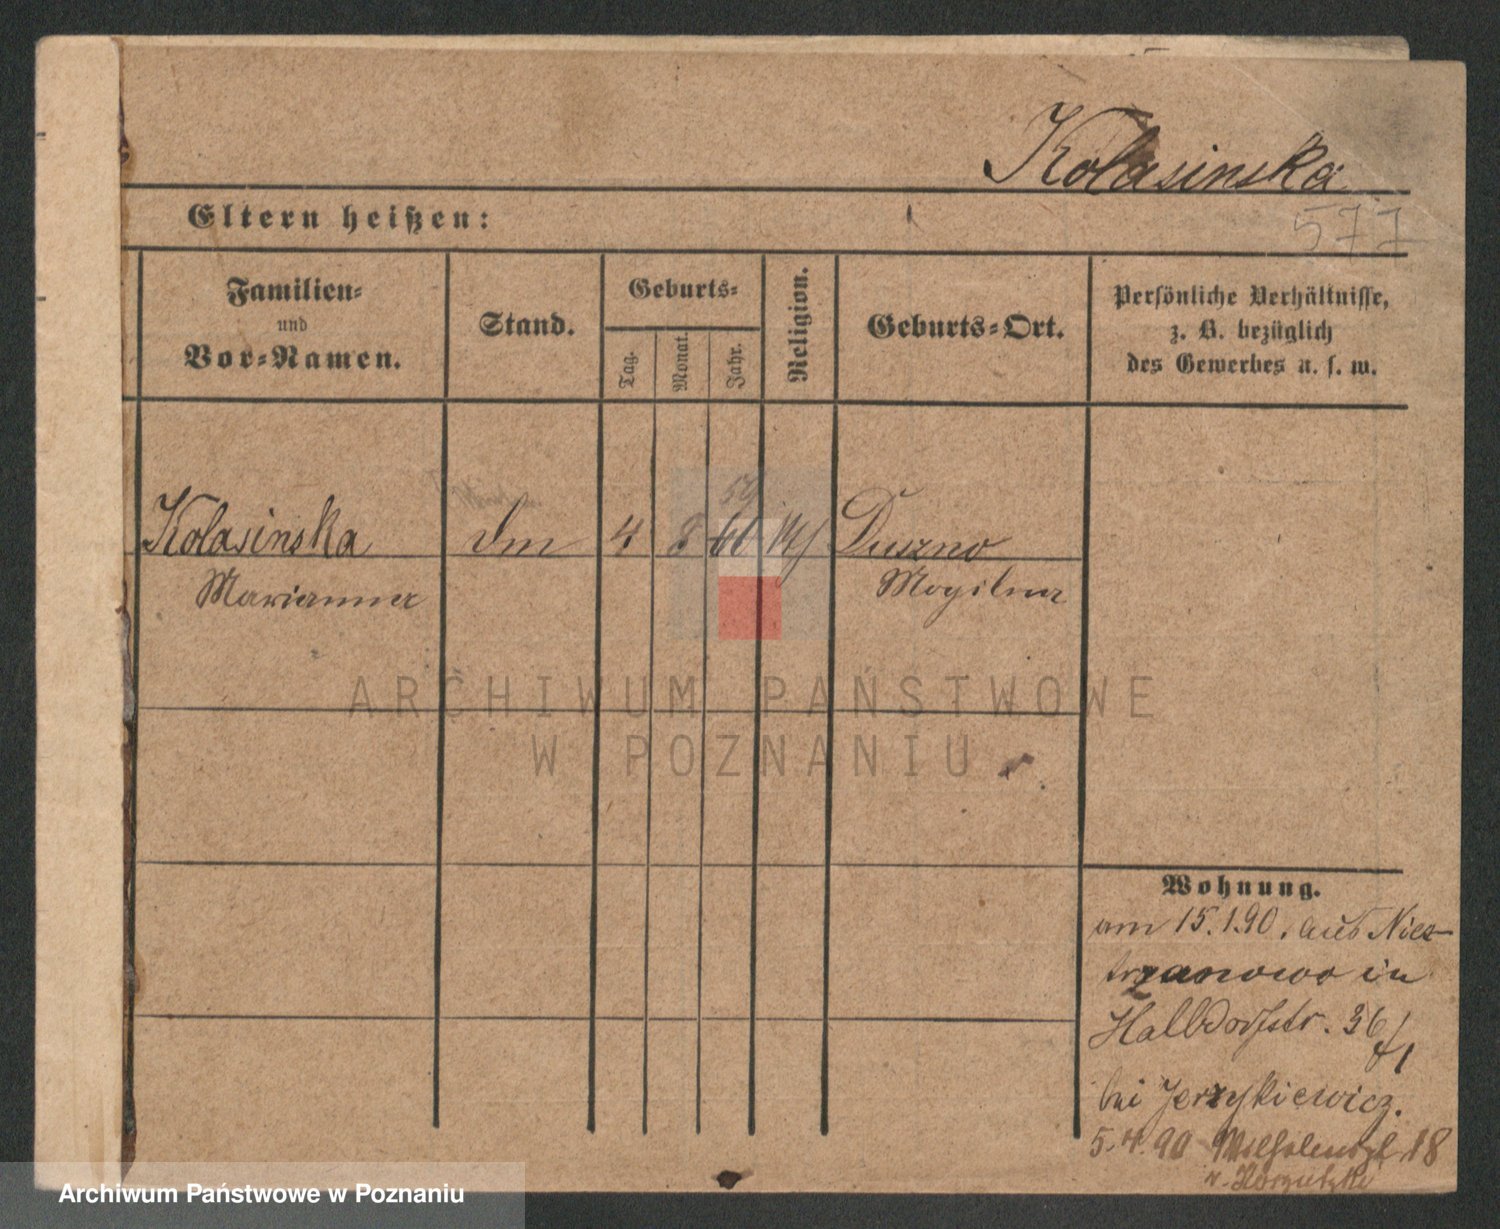 Kolasinska
577
Eltern heißen:
Familien-
und
Vor-Namen.
Stand.
Geburts-
Tag.
Monat.
Jahr.
Religion.
Geburts-Ort.
Persönliche Verhältnisse,
z. B. bezüglich
des Gewerbes u. s. w.
59
Kolasinska
4
8
60
Duszno
Marianna
Mogilno
ARCHIWUM PAŃSTWOWE
W POZNANIU
Wohnung.
am 15.1.90. aus Niez-
trzanowo in
Halbdorfstr. 36/1
bei Jerzykiewicz.
5.4.90 18
v.
Archiwum Państwowe w Poznaniu